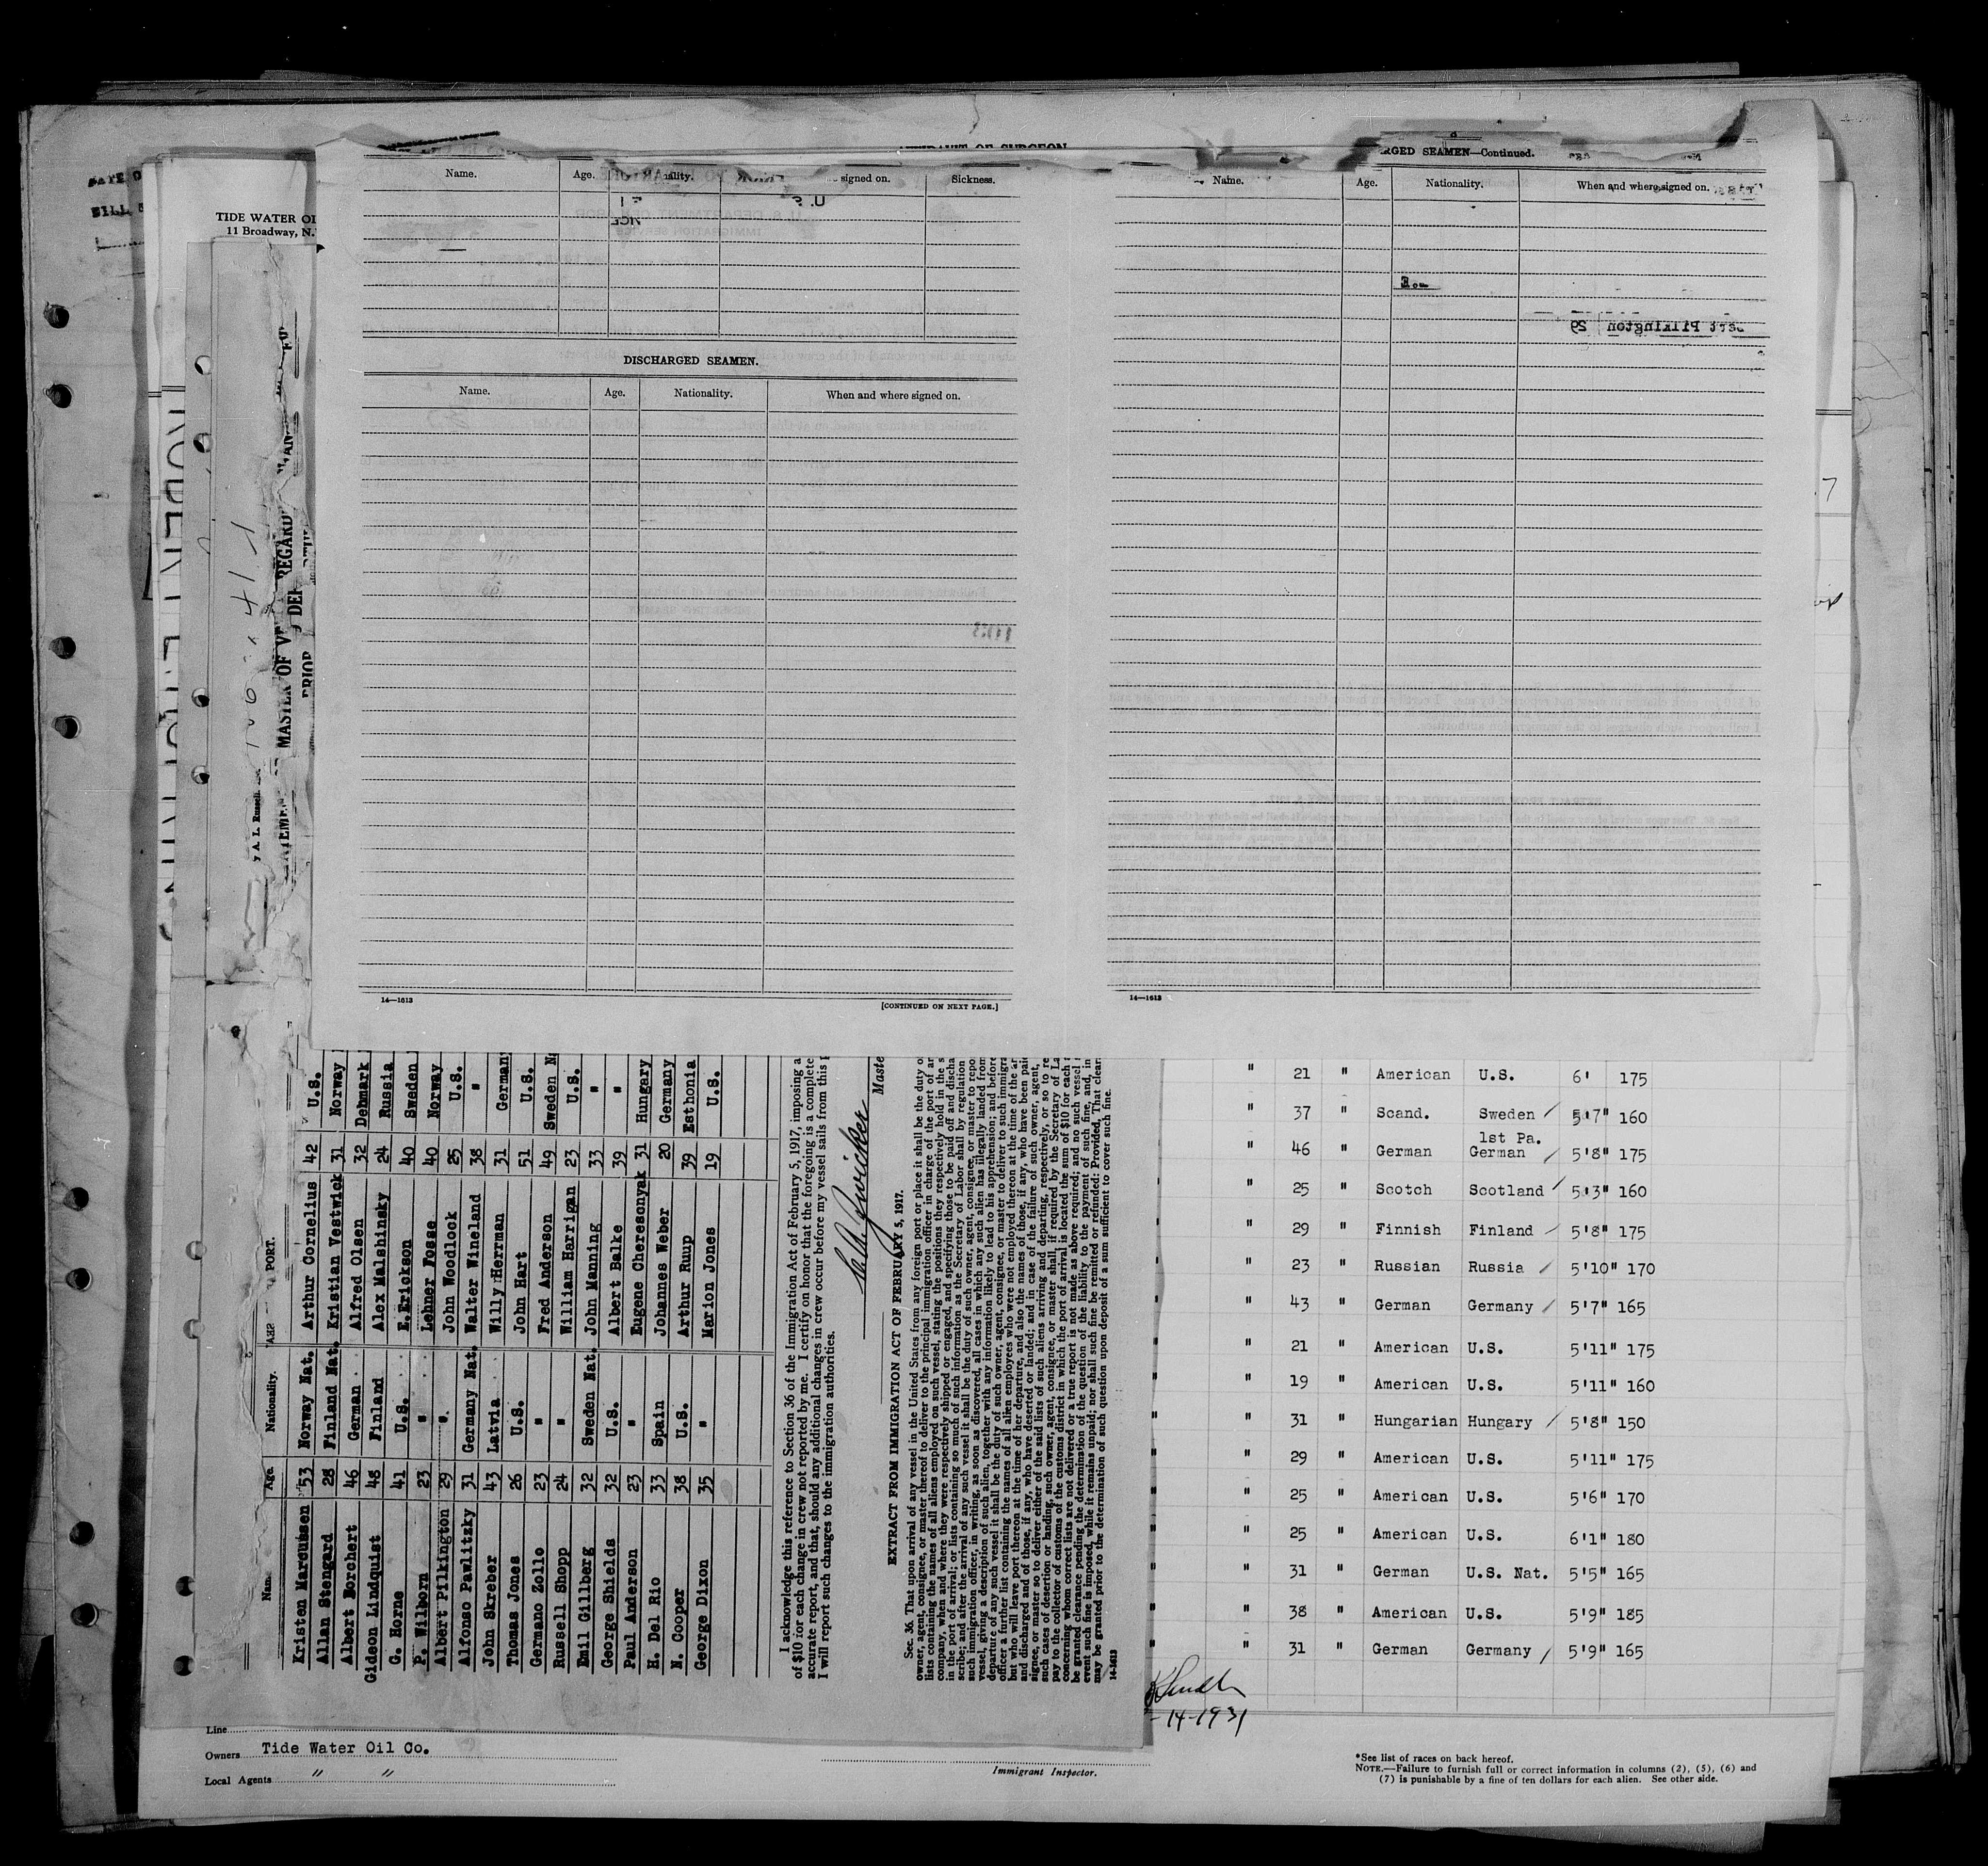 TIDE WATER OI
11 Broadway, N.
AFFIDAVIT OF SURGEON
Name. Age. ality. signed on. Sickness.
DISCHARGED SEAMEN.
Name. Age. Nationality. When and where signed on.
14—1613
[CONTINUED ON NEXT PAGE.]
RGED SEAMEN—Continued.
Name. Age. Nationality. When and where signed on.
14—1613
MASTER OF VE REGARD
PRIOR DEP
A. L. Russell
PORT.
Age. Nationality.
Kristen Marcussen 33 Norway Nat. Arthur Cornelius 42 U.S.
Allan Stengard 28 Finland Nat. Kristian Vestwick 31 Norway
Albert Borchert 46 German Alfred Olsen 32 Debmark
Gideon Lindquist 48 Finland Alex Malshinsky 24 Russia
G. Horne 41 U.S. E.Erickson 40 Sweden
P. Wilborn 23 " Lehner Fosse 40 Norway
Albert Pilkington 29 " John Woodlock 25 U.S.
Alfonso Pawlitzky 31 Germany Nat. Walter Wineland 38 "
John Skreber 43 Latvia Willy Herrman 31 Germany
Thomas Jones 26 U.S. John Hart 51 U.S.
Germano Zollo 23 " Fred Anderson 49 Sweden N
Russell Shopp 24 " William Harrigan 23 U.S.
Emil Gillberg 32 Sweden Nat. John Manning 33 "
George Shields 32 U.S. Albert Balke 39 "
Paul Anderson 23 " Eugene Cheresonyak 31 Hungary
H. Del Rio 33 Spain Johannes Weber 20 Germany
N. Cooper 38 U.S. Arthur Ruup 39 Esthonia
George Dixon 35 " Marion Jones 19 U.S.
I acknowledge this reference to Section 36 of the Immigration Act of February 5, 1917, imposing a
of $10 for each change in crew not reported by me. I certify on honor that the foregoing is a complete
accurate report, and that, should any additional changes in crew occur before my vessel sails from this p
I will report such changes to the immigration authorities.
Maste
EXTRACT FROM IMMIGRATION ACT OF FEBRUARY 5, 1917.
Sec. 36. That upon arrival of any vessel in the United States from any foreign port or place it shall be the duty o
owner, agent, consignee, or master thereof to deliver to the principal immigration officer in charge of the port of ar
lists containing the names of all aliens employed on such vessel, stating the positions they respectively hold in the s
company, when and where they were respectively shipped or engaged, and specifying those to be paid off and discha
in the port of arrival; or lists containing so much of such information as the Secretary of Labor shall by regulation
scribe; and after the arrival of any such vessel it shall be the duty of such owner, agent, consignee, or master to repo
such immigration officer, in writing, as soon as discovered, all cases in which any such alien has illegally landed from
vessel, giving a description of such alien, together with any information likely to lead to his apprehension; and before
departure of any such vessel it shall be the duty of such owner, agent, consignee, or master to deliver to such immigra
officer a further list containing the names of all alien employees who were not employed thereon at the time of the ar
but who will leave port thereon at the time of her departure, and also the names of those, if any, who have been paid
and discharged and of those, if any, who have deserted or landed; and in case of the failure of such owner, agent,
signee, or master so to deliver either of the said lists of such aliens arriving and departing, respectively, or so to re
such cases of desertion or landing, such owner, agent, consignee, or master shall, if required by the Secretary of La
pay to the collector of customs of the customs district in which the port of arrival is located the sum of $10 for each
concerning whom correct lists are not delivered or a true report is not made as above required; and no such vessel
be granted clearance pending the determination of the question of the liability to the payment of such fine, and, in
event such fine is imposed, while it remains unpaid; nor shall such fine be remitted or refunded: Provided, That clear
may be granted prior to the determination of such question upon deposit of a sum sufficient to cover such fine.
14-1613
" 21 " American U.S. 6' 175
" 37 " Scand. Sweden 5'7" 160
1st Pa.
" 46 " German German 5'8" 175
" 25 " Scotch Scotland 5'3" 160
" 29 " Finnish Finland 5'8" 175
" 23 " Russian Russia 5'10" 170
" 43 " German Germany 5'7" 165
" 21 " American U.S. 5'11" 175
" 19 " American U.S. 5'11" 160
" 31 " Hungarian Hungary 5'8" 150
" 29 " American U.S. 5'11" 175
" 25 " American U.S. 5'6" 170
" 25 " American U.S. 6'1" 180
" 31 " German U.S. Nat. 5'5" 165
" 38 " American U.S. 5'9" 185
" 31 " German Germany 5'9" 165
-14-1931
Line
Owners Tide Water Oil Co.
Local Agents " "
Immigrant Inspector.
*See list of races on back hereof.
NOTE.—Failure to furnish full or correct information in columns (2), (5), (6) and
(7) is punishable by a fine of ten dollars for each alien. See other side.